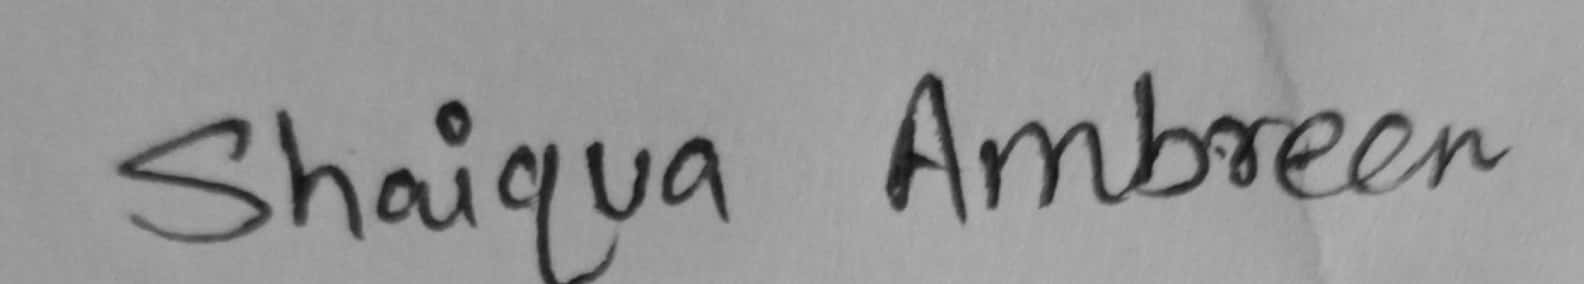 Shaiqua Ambreen